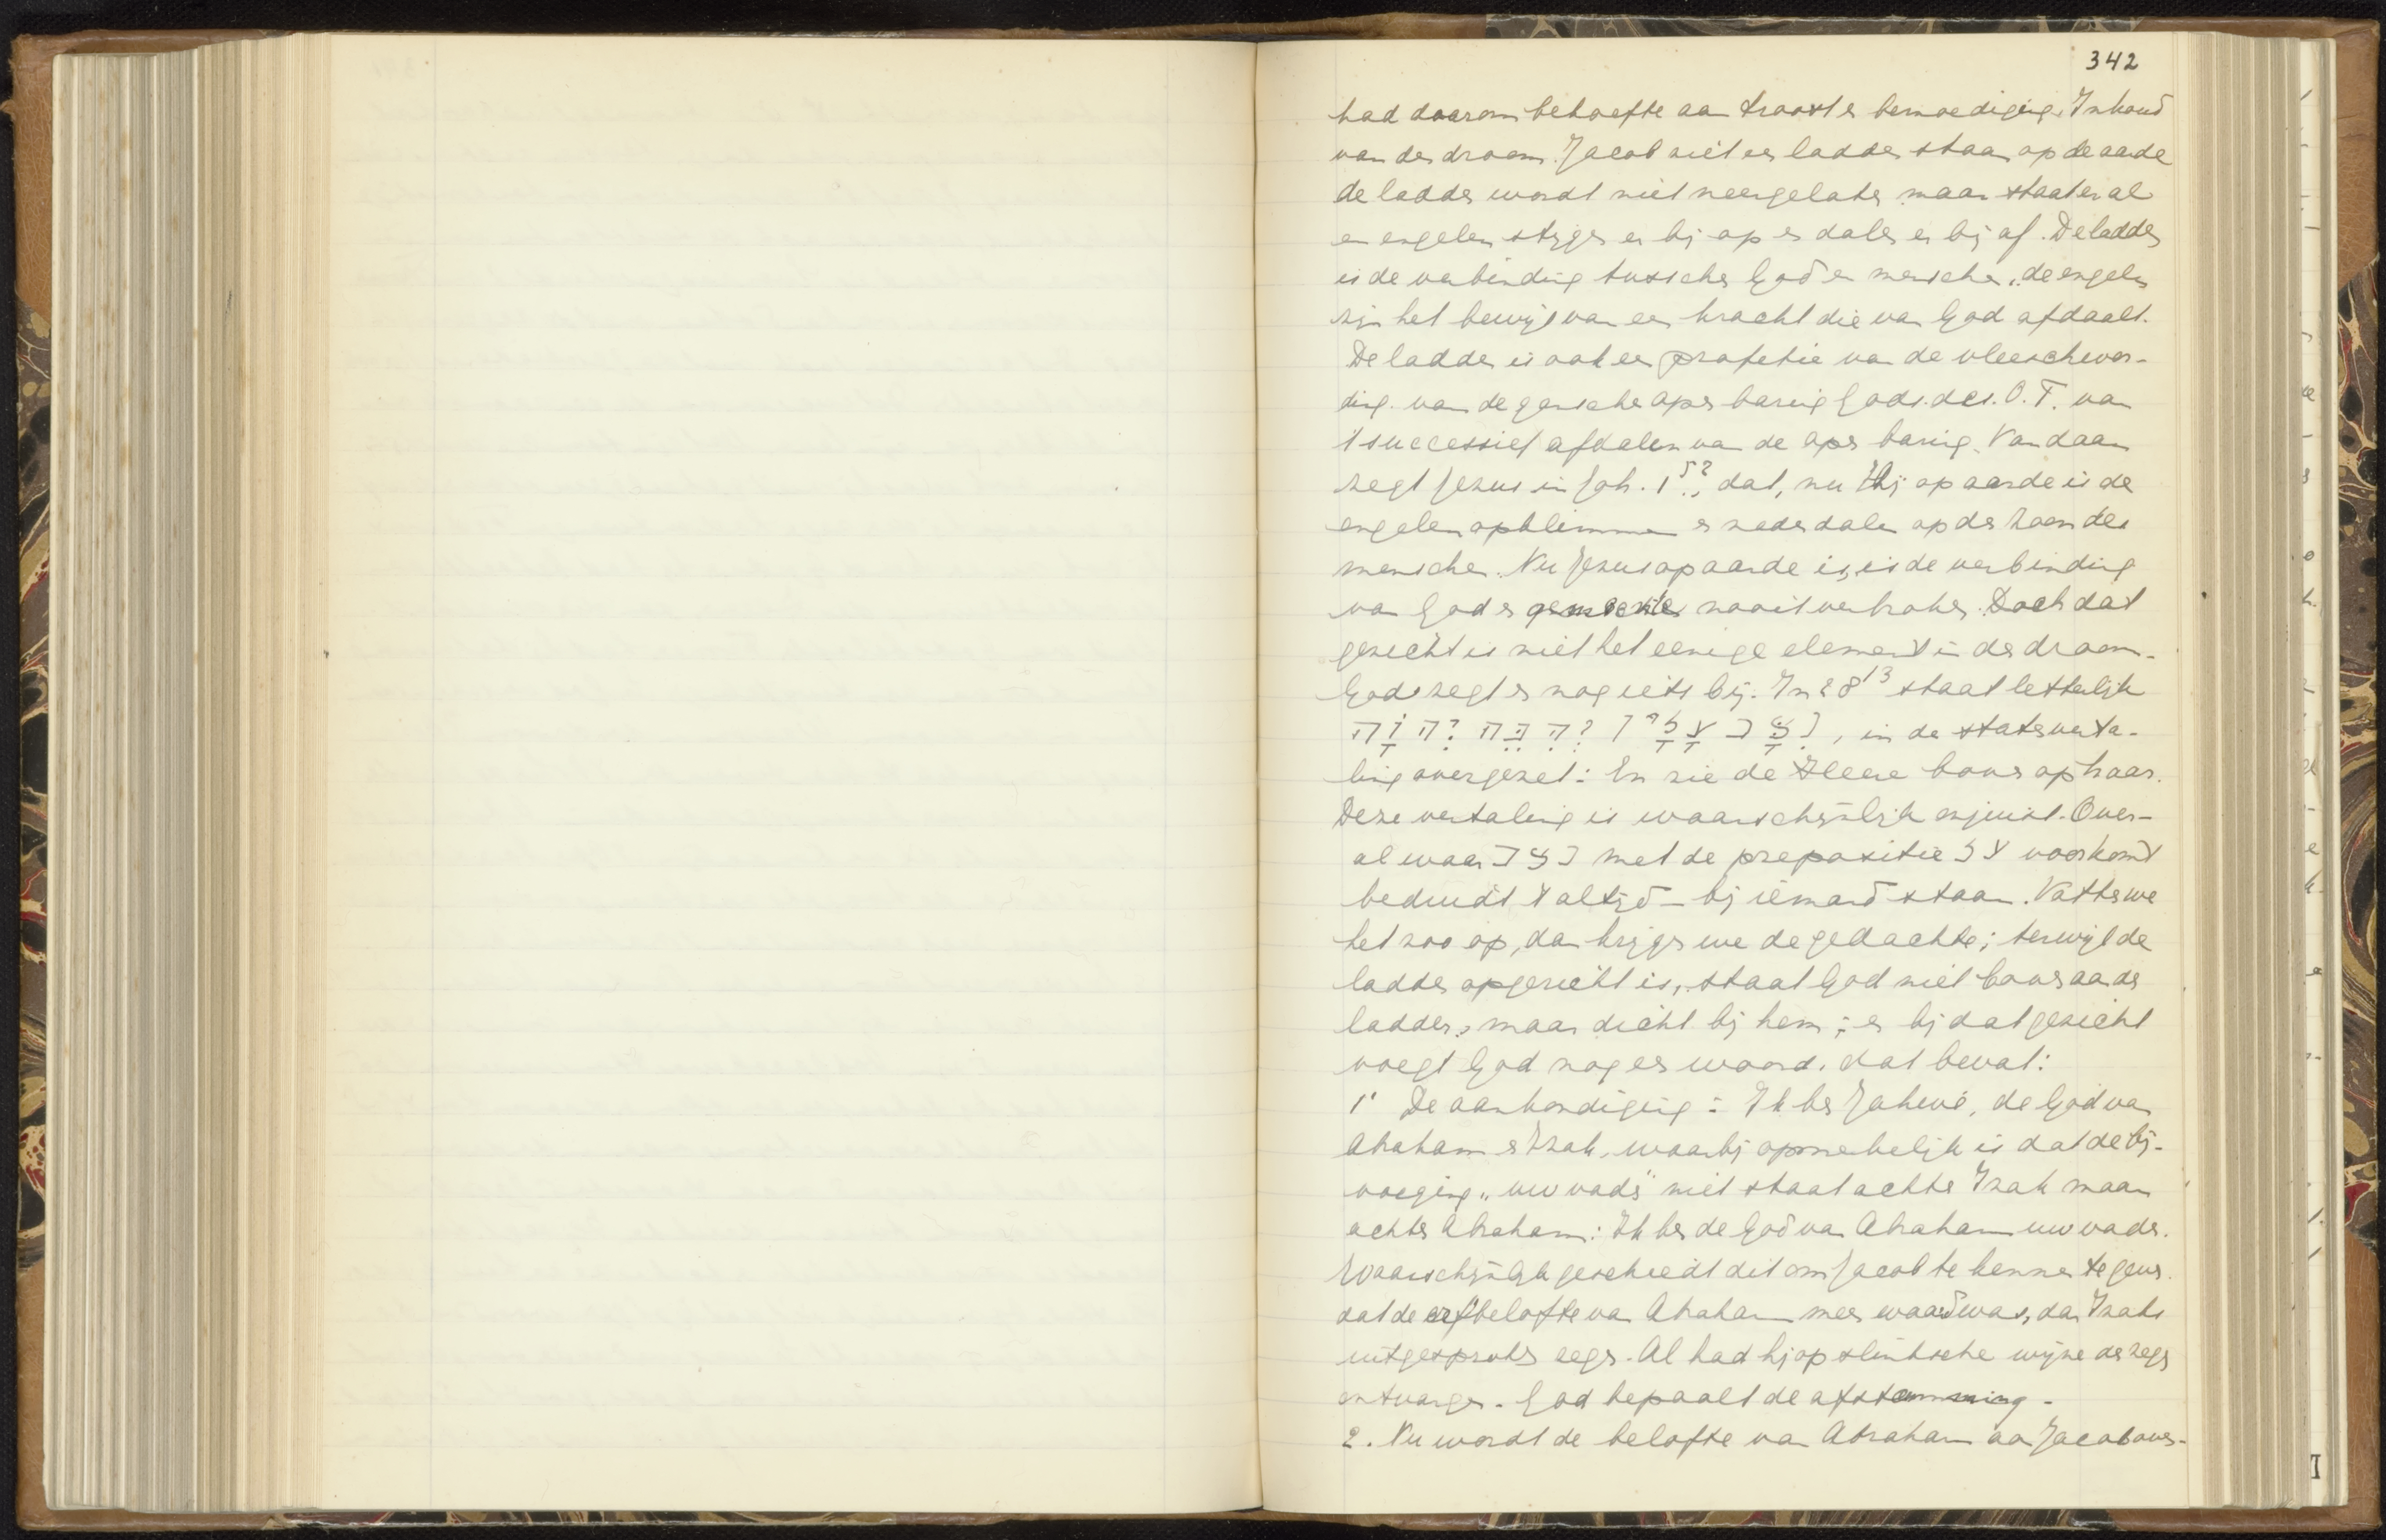 342
had daarom behoefte aan troost en bemoediging. Inhoud
van den droom. Jacob ziet een ladder staan op de aarde
de ladder wordt niet neergelaten maar staat er al
en engelen stijgen er bij op en dalen er bij af. De ladder
is de verbinding tusschen God en menschen, de engelen
zijn het bewijs van een kracht die van God afdaalt.
De ladder is ook een profetie van de vleeschwor-
ding van de gansche openbaring Gods des O.T. van
't successief afdalen van de openbaring. Vandaar
zegt Jezus in Joh. 1 52, dat, nu Hij op aarde is de
engelen opklimmen en nederdalen op den Zoon des
menschen. Nu Jezus op aarde is, is de verbinding
van God en menschen nooit verbroken. Doch dat
gezicht is niet het eenige element in den droom.
God zegt er nog iets bij. In 28 13 staat letterlijk
וְהִנֵּה יְהוָה נִצָּב עָלָיו, in de statenverta-
ling overgezet: En zie de Heere boven op haar.
Deze vertaling is waarschijnlijk onjuist. Over-
al waar נצב met de prepositie על voorkomt
beduidt 't altijd - bij iemand staan. Vatten we
het zoo op, dan krijgen we de gedachte; terwijl de
ladder opgericht is, staat God niet boven aan de
ladder, maar dicht bij hem; en bij dat gezicht
voegt God nog een woord, dat bevat:
1° De aankondiging: Ik ben Jahwé, de God van
Abraham en Izak, waarbij opmerkelijk is dat de bij-
voeging „uw vader" niet staat achter Izak maar
achter Abraham: Ik ben de God van Abraham uw vader.
Waarschijnlijk geschiedt dit om Jacob te kennen te geven
dat de erfbelofte van Abraham meer waard was, dan Izaks
uitgesproken zegen. Al had hij op slinksche wijze den zegen
ontvangen. God bepaalt de afstamming.
2. Nu wordt de belofte van Abraham aan Jacob over-